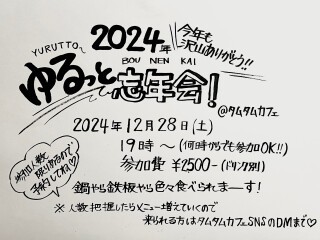 YURUTTO〜
2024年
今年も
沢山ありがとう!!
BOU NEN KAI
ゆるっと忘年会!
@タムタムカフェ
2024年12月28日(土)
19時〜(何時からでも参加OK!!)
参加費 ¥2500-(ドリンク別)
参加人数
限りあるので
予約してね♡
鍋やら鉄板やら色々食べられまーす!
※人数把握したらメニュー増えていくので
来られる方はタムタムカフェSNSのDMまで♡